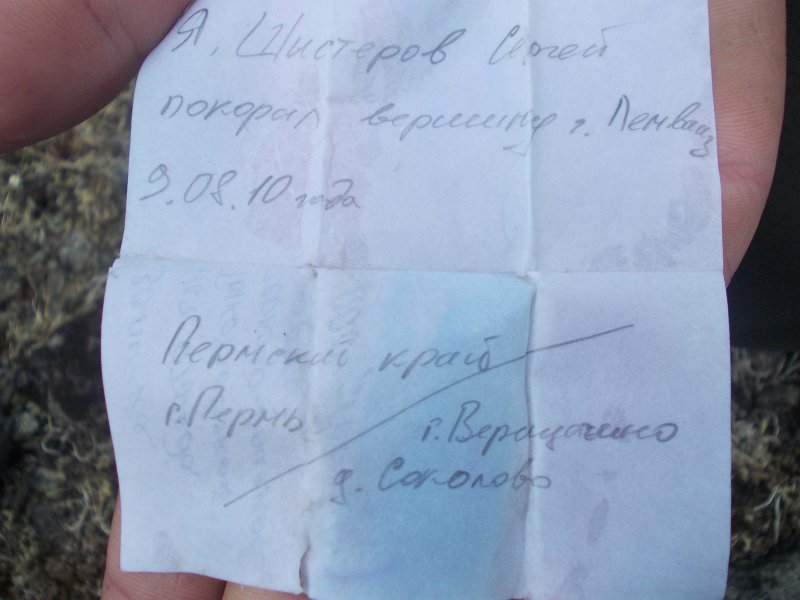 Я, Шистеров Сергей
покорил вершину г. Лемваиз
9.08.10 года
Пермский край
г. Пермь
г. Верещагино
д. Соколово